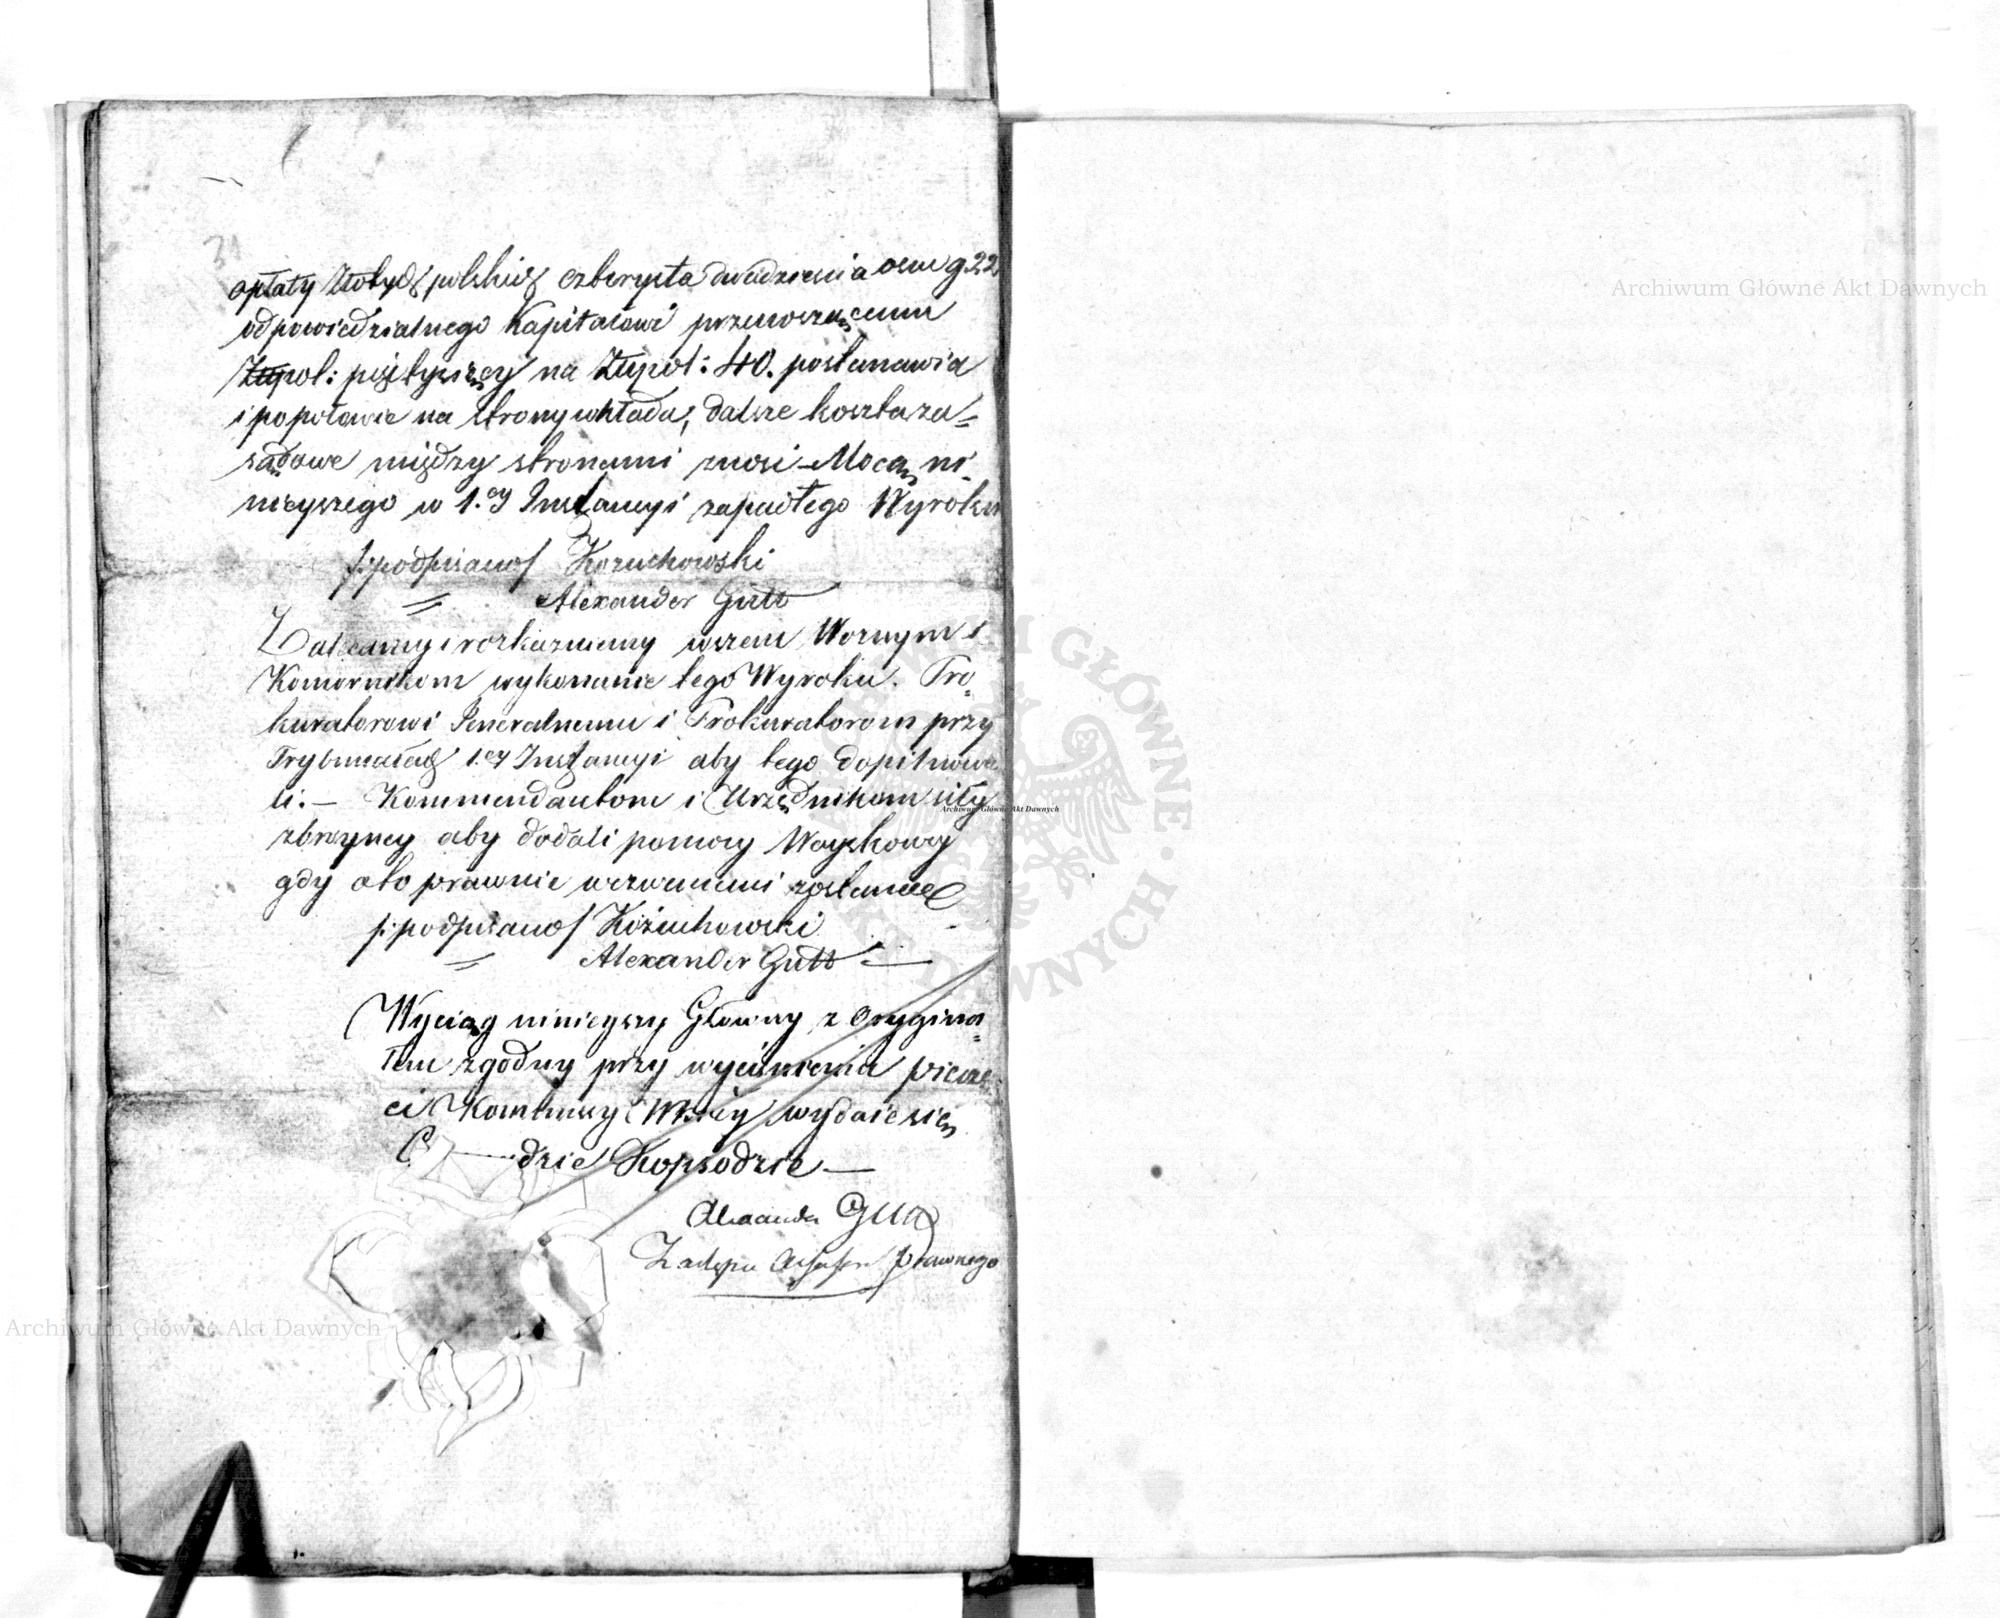 31
opłaty Złotych polskich czterysta dwadzieścia osm g 22
odpowiedzialnego Kapitałowi przenoszącemu
Złłpol: pięć tysięcy na Złłpol: 40. postanawia
i popołowie na strony wkłada, dalsze koszta za=
sądowe między stronami znosi – Mocą ni=
nieyszego w 1.ey Instancyi zapadłego Wyroku
/:podpisano/ Kozuchowski
= Alexander Gutt
Zalecamy i rozkazuiemy wszem Woznym i
Komornikom wykonanie tego Wyroku. Pro=
kuratorowi Jeneralnemu i Prokuratorom przy
Trybunałach 1.ey Instancyi aby tego dopilnowa
li. – Kommendantom i Urzędnikom siły
zbroyney aby dodali pomocy Woyskowey
gdy oto prawnie wezwanemi zostaną
/:podpisano/ Kożuchowski
= Alexander Gutt —
Wyciąg ninieyszy Główny z Orygina=
łem zgodny przy wyciśnieniu pieczę=
ci wydaie się
Alexander Gutt
Zastępca Assessora Prawnego
Archiwum Główne Akt Dawnych
Archiwum Główne Akt Dawnych
Archiwum Główne Akt Dawnych
ARCHIWUM GŁÓWNE AKT DAWNYCH